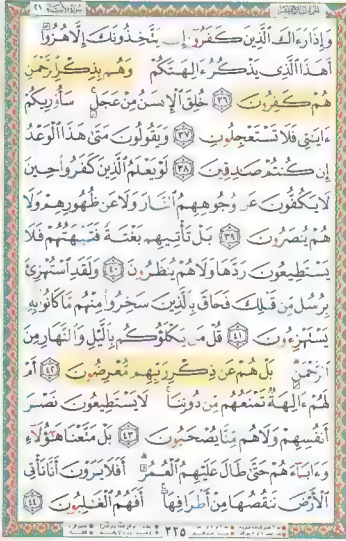 وَإِذَا رَءَاكَ الَّذِينَ كَفَرُوٓا۟ إِن يَتَّخِذُونَكَ إِلَّا هُزُوًا
أَهَٰذَا الَّذِى يَذْكُرُ ءَالِهَتَكُمْ وَهُم بِذِكْرِ الرَّحْمَٰنِ
هُمْ كَٰفِرُونَ ٣٦ خُلِقَ الْإِنسَٰنُ مِنْ عَجَلٍ سَأُو۟رِيكُمْ
ءَايَٰتِى فَلَا تَسْتَعْجِلُونِ ٣٧ وَيَقُولُونَ مَتَىٰ هَٰذَا الْوَعْدُ
إِن كُنتُمْ صَٰدِقِينَ ٣٨ لَوْ يَعْلَمُ الَّذِينَ كَفَرُوا۟ حِينَ
لَا يَكُفُّونَ عَن وُجُوهِهِمُ النَّارَ وَلَا عَن ظُهُورِهِمْ وَلَا
هُمْ يُنصَرُونَ ٣٩ بَلْ تَأْتِيهِم بَغْتَةً فَتَبْهَتُهُمْ فَلَا
يَسْتَطِيعُونَ رَدَّهَا وَلَا هُمْ يُنظَرُونَ ٤٠ وَلَقَدِ اسْتُهْزِئَ
بِرُسُلٍ مِّن قَبْلِكَ فَحَاقَ بِالَّذِينَ سَخِرُوا۟ مِنْهُم مَّا كَانُوا۟ بِهِۦ
يَسْتَهْزِءُونَ ٤١ قُلْ مَن يَكْلَؤُكُم بِالَّيْلِ وَالنَّهَارِ مِنَ
الرَّحْمَٰنِ بَلْ هُمْ عَن ذِكْرِ رَبِّهِم مُّعْرِضُونَ ٤٢ أَمْ
لَهُمْ ءَالِهَةٌ تَمْنَعُهُم مِّن دُونِنَا لَا يَسْتَطِيعُونَ نَصْرَ
أَنفُسِهِمْ وَلَا هُم مِّنَّا يُصْحَبُونَ ٤٣ بَلْ مَتَّعْنَا هَٰٓؤُلَآءِ
وَءَابَآءَهُمْ حَتَّىٰ طَالَ عَلَيْهِمُ الْعُمُرُ أَفَلَا يَرَوْنَ أَنَّا نَأْتِى
الْأَرْضَ نَنقُصُهَا مِنْ أَطْرَافِهَآ أَفَهُمُ الْغَٰلِبُونَ ٤٤
٣٢٥